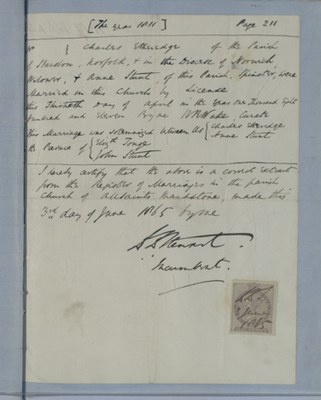 [The year 1811] Page 211
Charles Etheredge of the Parish
of Starston, Norfolk, & in the Diocese of Norwich,
Widower, & Anne Stunt, of this Parish, Spinster, were
Married in this Church by License
this Thirtieth day of April in the Year One Thousand Eight
hundred and Eleven By me Curate
This Marriage was solemnized between us { Charles Etheredge
Anne Stunt
the Presence of { Tonge
John Stunt
I hereby certify that the above is a correct extract
from the Register of Marriages in the parish
church of All Saints, Maidstone, made this
3rd day of June 1865 by me
Stewart.
Incumbent.
3 June
1865